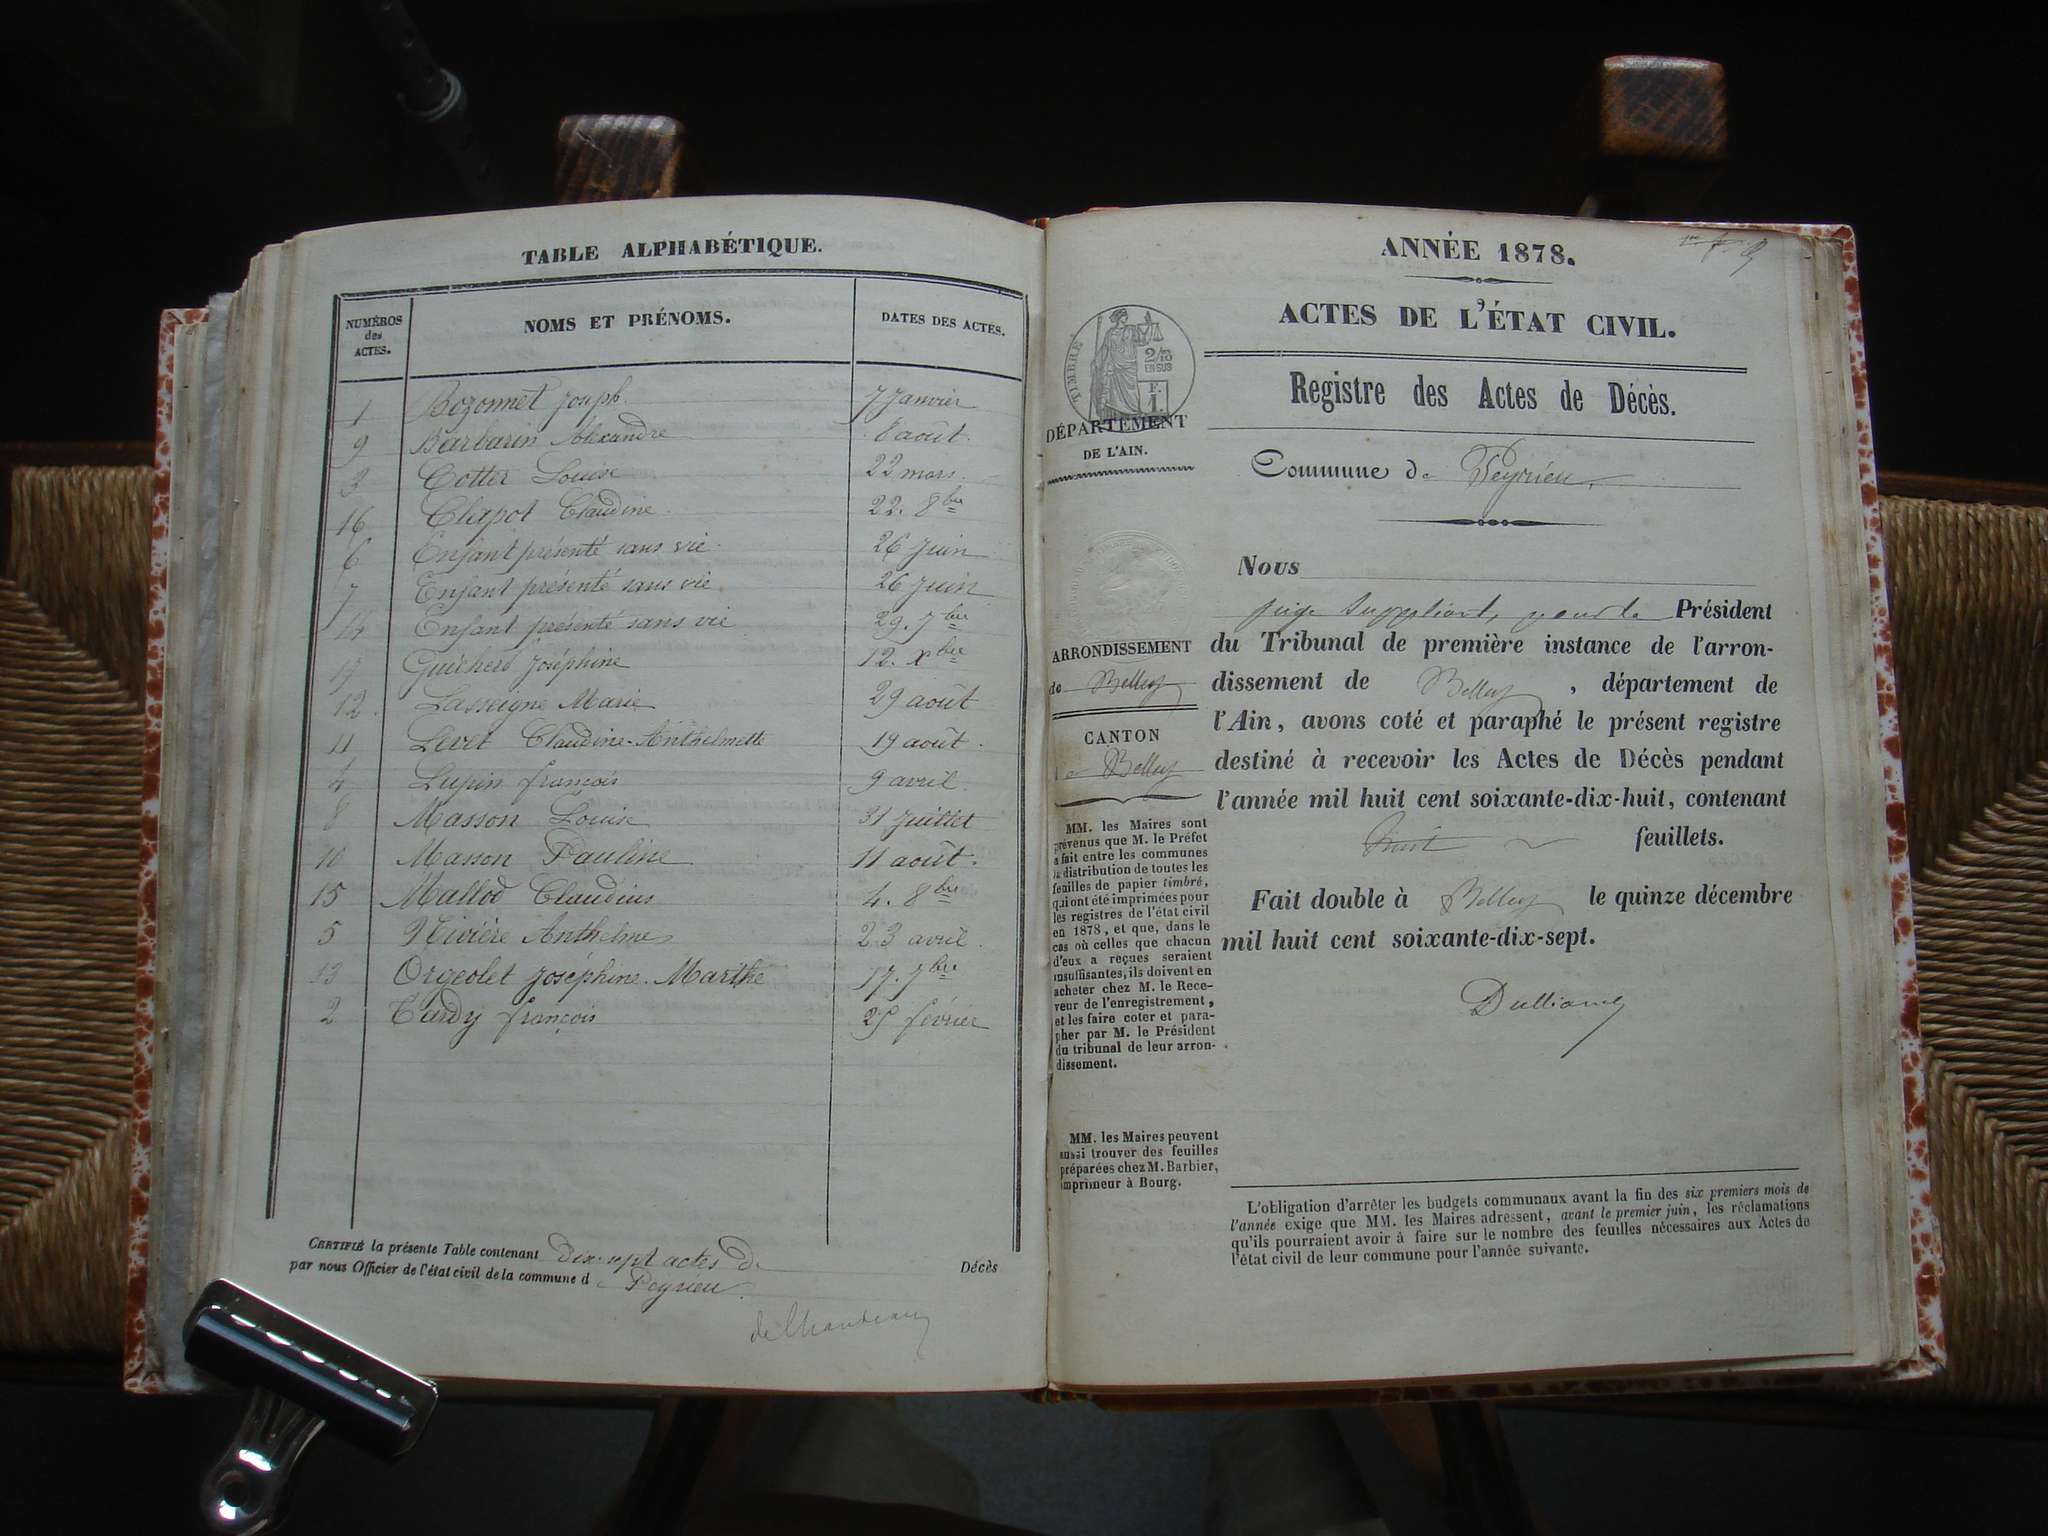 TABLE ALPHABÉTIQUE.
NUMÉROS
des
ACTES.
NOMS ET PRÉNOMS.
DATES DES ACTES.
1 Bozonnet Joseph. 7 Janvier
9 Barbarin Alexandre 8 août.
3 Cotter Louise 22 mars.
16 Clapot Claudine. 22. 8bre
6 Enfant présenté sans vie. 26 Juin
7 Enfant présenté sans vie. 26 Juin
14 Enfant présenté sans vie 29. 7bre
17 Guicherd Joséphine 12. Xbre
12. Lasseigne Marie 29 août
11 Levet Claudine-Anthelmette 19 août.
4 Lupin françois 9 avril.
8 Masson Louise 31 Juillet
10 Masson Pauline 11 août.
15 Mallod Claudius 4. 8bre
5 Nivière Anthelme 23 avril.
13 Orgeolet Joséphine. Marthe 17. 7bre
2 Tardy françois février
CERTIFIÉ la présente Table contenant Dix-sept actes de Décès
par nous Officier de l'état civil de la commune de Peyrieu.
ANNÉE 1878.
ACTES DE L'ÉTAT CIVIL.
TIMBRE
2/10
EN SUS
F.
1
DÉPARTEMENT
DE L'AIN.
Registre des Actes de Décès.
Commune de Peyrieu.
Nous
juge suppléant, pour le Président
du Tribunal de première instance de l'arron-
dissement de Belley, département de
l'Ain, avons coté et paraphé le présent registre
destiné à recevoir les Actes de Décès pendant
l'année mil huit cent soixante-dix-huit, contenant
feuillets.
Fait double à Belley le quinze décembre
mil huit cent soixante-dix-sept.
ARRONDISSEMENT
de Belley
CANTON
de Belley
MM. les Maires sont
prévenus que M. le Préfet
a fait entre les communes
la distribution de toutes les
feuilles de papier timbré,
qui ont été imprimées pour
les registres de l'état civil
en 1878, et que, dans le
cas où celles que chacun
d'eux a reçues seraient
insuffisantes, ils doivent en
acheter chez M. le Rece-
veur de l'enregistrement,
et les faire coter et para-
pher par M. le Président
du tribunal de leur arron-
dissement.
MM. les Maires peuvent
aussi trouver des feuilles
préparées chez M. Barbier,
imprimeur à Bourg.
L'obligation d'arrêter les budgets communaux avant la fin des six premiers mois de
l'année exige que MM. les Maires adressent, avant le premier juin, les réclamations
qu'ils pourraient avoir à faire sur le nombre des feuilles nécessaires aux Actes de
l'état civil de leur commune pour l'année suivante.